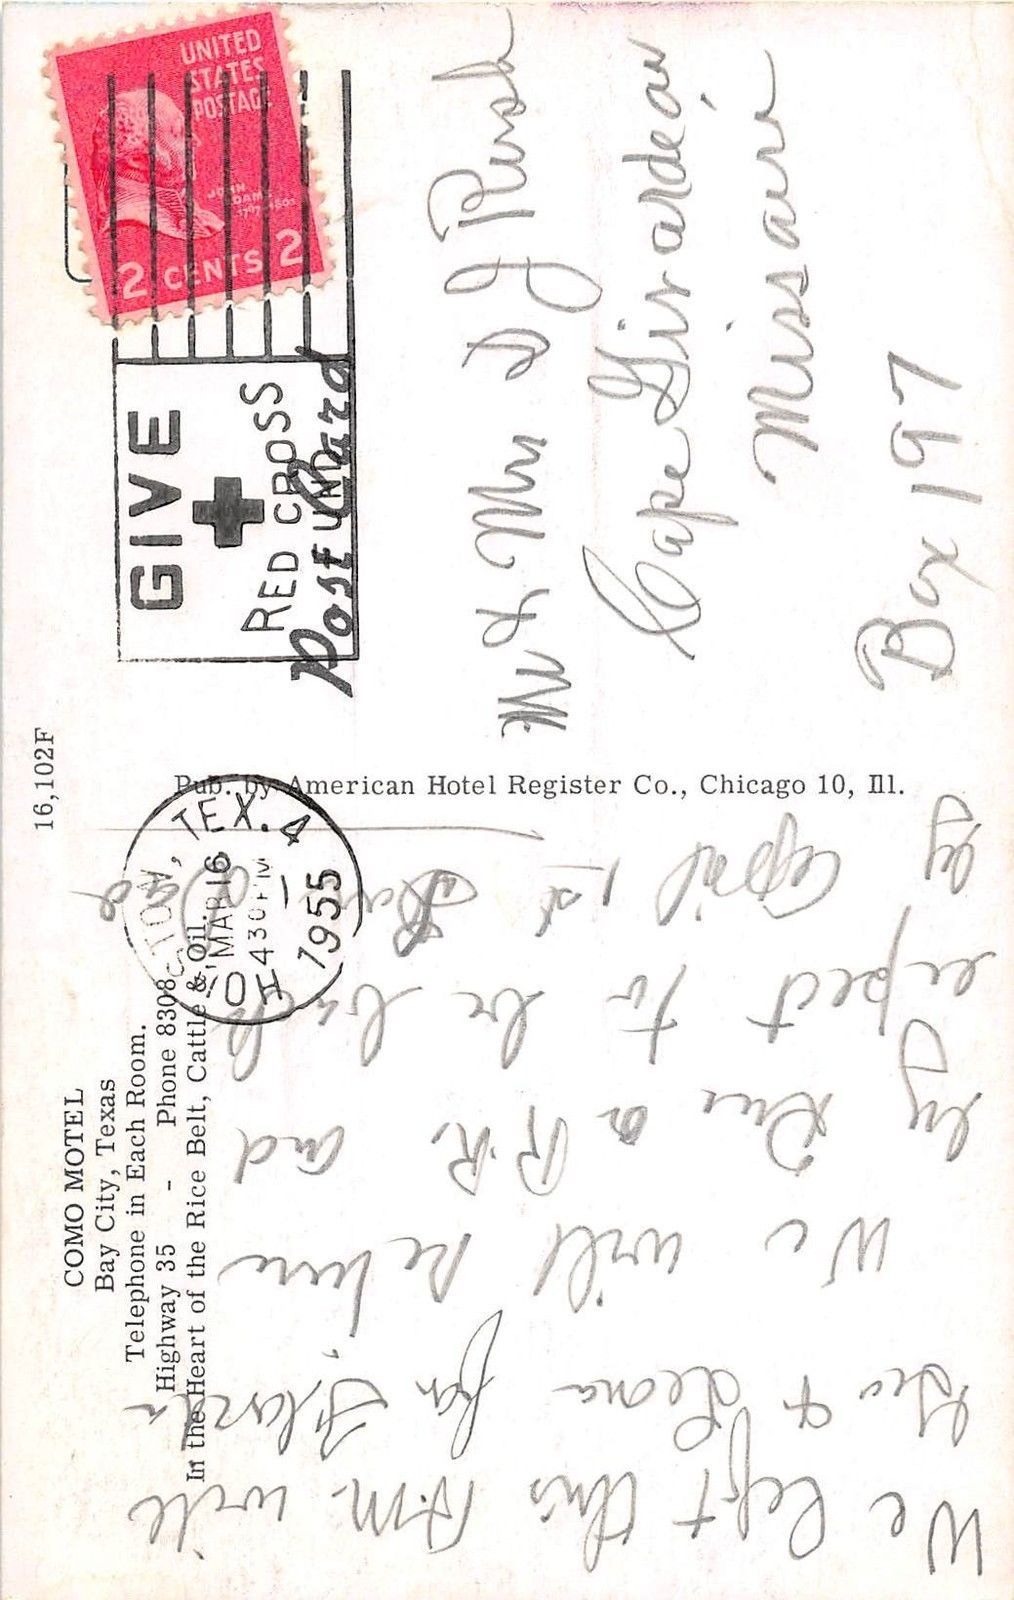 COMO MOTEL
Bay City, Texas
Telephone in Each Room.
Highway 35 - Phone 8308
In the Heart of the Rice Belt, Cattle & Oil.
16,102F
We left this A.M. with
Geo & Leona for Florida
We will return
by R.R. and
expect to be back
by April 1st
Pub. by American Hotel Register Co., Chicago 10, Ill.
HOUSTON, TEX. 4
MAR 16
430 PM
1955
GIVE
RED CROSS
FUND
Post Card
UNITED
STATES
POSTAGE
JOHN
ADAMS
1797-1801
2 CENTS 2
Mr & Mrs D J Rush
Cape Girardeau
Missouri
Box 197